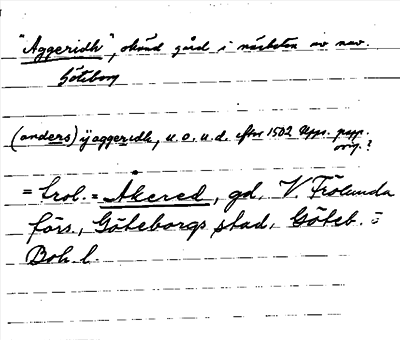 "Aggeridh", okänd gård i närheten av nuv.
Göteborg
(anders) i aggeridh, u.o.u.d. efter 1502 Upps. papp.
orig.?
= trol. = Åkered, gd, V. Frölunda
förs., Göteborgs stad, Göteb. o
Boh. l.